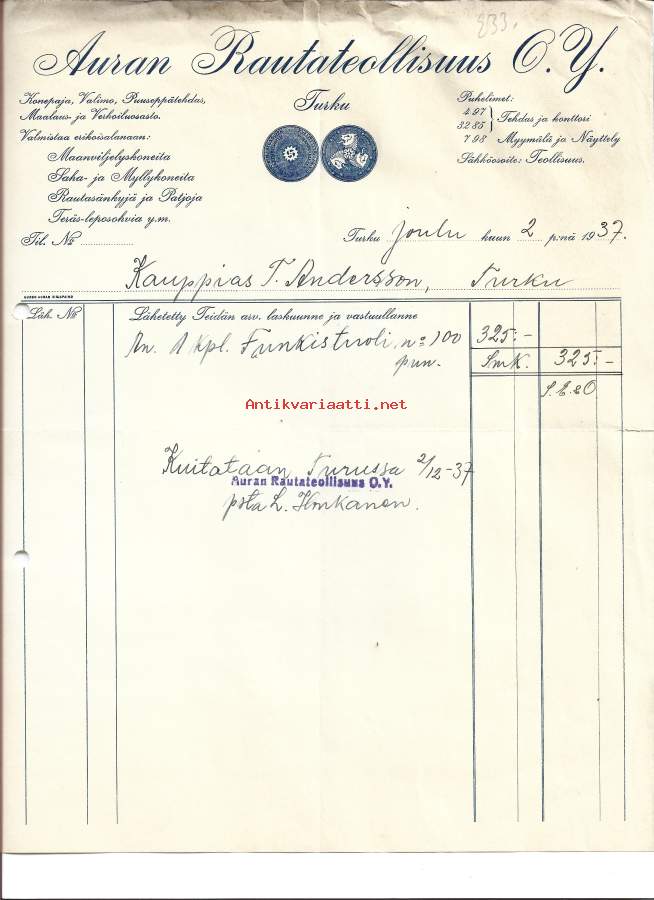 333.
Auran Rautateollisuus O.Y.
Konepaja, Valimo, Puuseppätehdas,
Maalaus- ja Verhoiluosasto.
Valmistaa erikoisalanaan:
Maanviljelyskoneita
Saha- ja Myllykoneita
Rautasänkyjä ja Patjoja
Teräs-leposohvia y.m.
Turku
Puhelimet:
4 97
32 85
Tehdas ja konttori
7 98 Myymälä ja Näyttely
Sähköosoite: Teollisuus.
Til. No
Turku joulu kuun 2 p:nä 1937.
Kauppias T. Andersson, Turku
Läh. No Lähetetty Teidän arv. laskuunne ja vastuullanne
1 kpl. Funkistuoli, no 100 325:-
pun. Smk. 325:-
S.E.&O
Antikvariaatti.net
Kuitataan Turussa 2/12-37
Auran Rautateollisuus O.Y.
psta L.